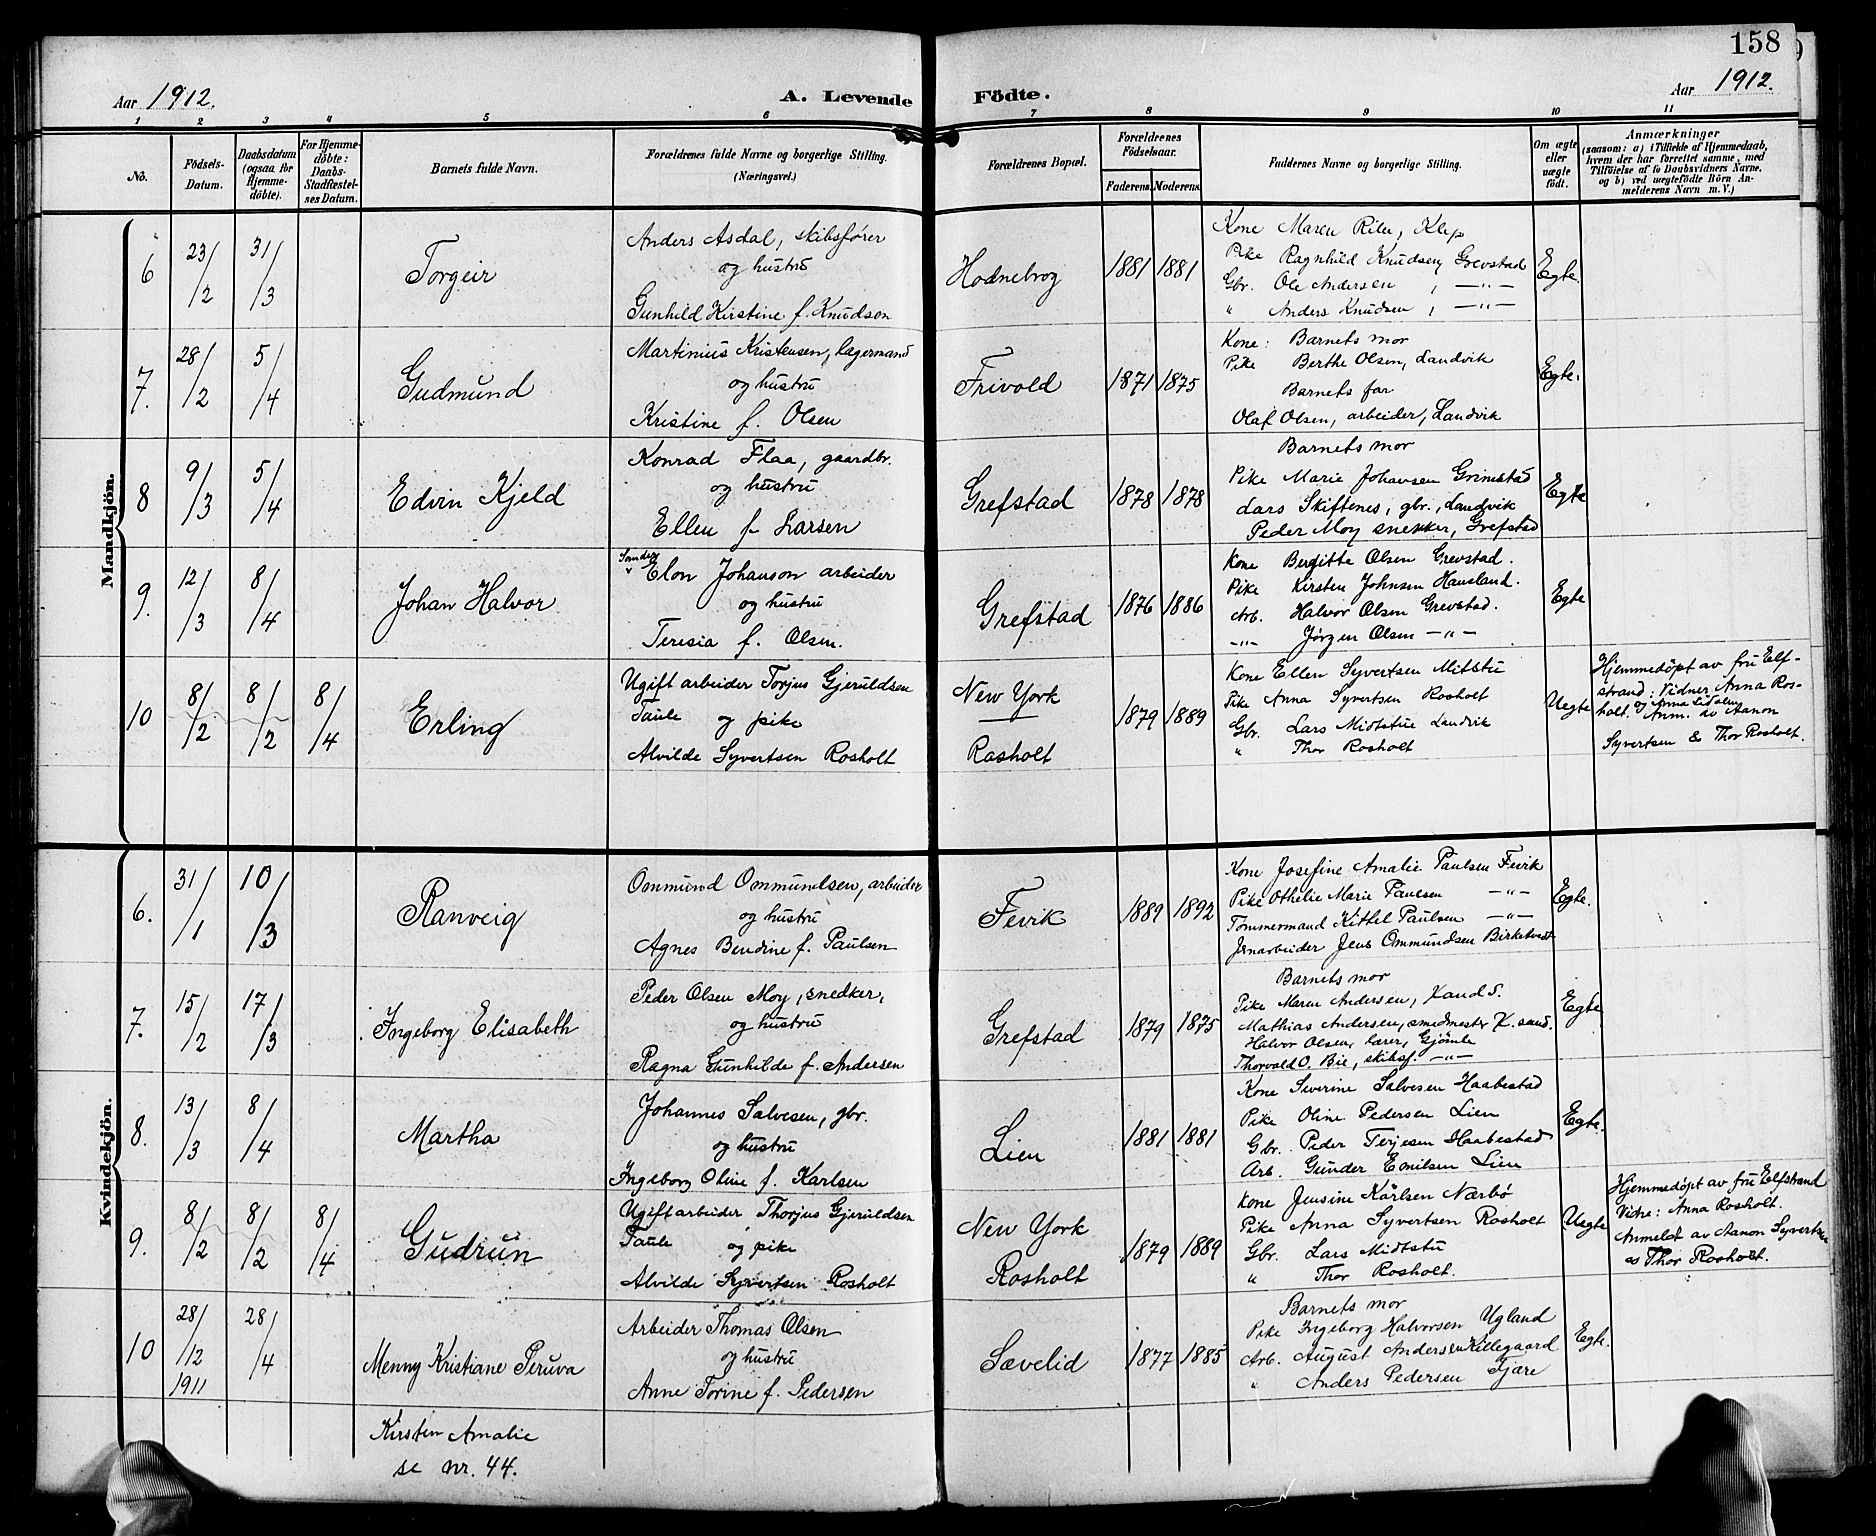 158
Aar 1912.
A. Levende Födte.
Aar 1912.
1 2 3 4 5 6 7 8 9 10 11
No.
Födsels-Datum.
Daabsdatum (ogsaa for Hjemme-döbte).
For Hjemme-döbte: Daabs-Stadfæstel-ses Datum.
Barnets fulde Navn.
Forældrenes fulde Navne og borgerlige Stilling.
(Næringsvei.)
Forældrenes Bopæl.
Forældrenes Födselsaar.
Faderens. Moderens.
Faddernes Navne og borgerlige Stilling.
Om ægte eller uægte født.
Anmærkninger
(saasom: a) i Tilfælde af Hjemmedaab,
hvem der har forrettet samme, med
Tilföielse af to Daabsvidners Navne.
og b) ved uægtefödte Börn An-
melderens Navn m. V.)
Mandkjön.
6 23/2 31/3
Torgeir
Anders Asdal, skibsfører
og hustru
Gunhild Kirstine f. Knudson
Hodnebrog
1881 1881
Kone Maren Rilen, Klep
Pike Ragnhild Knudsen, Grevstad
Gbr. Ole Andersen, —"—
" Anders Knudsen, —"—
Egte.
7. 28/2 5/4
Gudmund
Martinius Kristensen, lagermand
og hustru
Kristine f. Olsen
Frivold
1871 1875
Kone: Barnets mor
Pike Berthe Olsen, Landvik
Barnets far
Olaf Olsen, arbeider, Landvik
Egte.
8 9/3 5/4
Edvin Kjeld
Konrad Flaa, gaardbr.
og hustru
Ellen f Larsen
Grefstad
1878 1878
Barnets mor
Pike Marie Johansen Grimstad
Lars Skiftenes, gbr., Landvik
Peder Moy snekker, Grefstad
Egte
9. 12/3 8/4
Johan Halvor
Sander
Elon Johanson arbeider
og hustru
Teresia f. Olsen.
Grefstad
1876 1886
Kone Bergitte Olsen Grevstad.
Pike Kirsten Johnsen Hausland.
Arb. Halvor Olsen Grevstad.
—"— Jørgen Olsen —"—
Egte
10 8/2 8/2 8/4
Erling
Ugift arbeider Torjus Gjeruldsen
Taule og pike
Alvilde Syvertsen Rosholt
New York
Rosholt
1879 1889
Kone Ellen Syvertsen Mitstu
Pike Anna Syvertsen Rosholt
Gbr. Lars Midtstue Landvik
" Thor Rosholt
Uegte
Hjemmedöpt av fru Elf-
strand: Vidner Anna Ros-
holt. og Anna
Anm. av Aanon
Syvertsen & Thor Rosholt.
Kvindekjön.
6. 31/1 10/3
Ranveig
Ommund Ommundsen, arbeider
og hustru
Agnes Bendine f. Paulsen
Fevik
1889 1892
Kone Josefine Amalie Paulsen Fevik
Pike Othelie Marie Paulsen —"—
Tømmermand Kittel Paulsen —"—
Jernarbeider Jens Ommundsen Birketveit
Egte.
7. 15/2 17/3
Ingeborg Elisabeth
Peder Olsen Moy, snedker,
og hustru
Ragna Gunhilde f. Andersen
Grefstad
1879 1875
Barnets mor
Pike Maren Andersen, Xand S.
Mathias Andersen, smedmester X.sand.
Halvor Olsen, lærer, Gjömle
Thorvald O. Bie, skibsf. —"—
Egte
8. 13/3 8/4
Martha
Johannes Salvesen, gbr.
og hustru
Ingeborg Oline f. Karlsen
Lien
1881 1881
Kone Severine Salvesen Haabestad
Pike Oline Pedersen Lien
Gbr. Peder Terjesen Haabestad
Arb. Gunder Emilsen Lien
Egte.
9. 8/2 8/2 8/4
Gudrun
Ugift arbeider Thorjus Gjeruldsen
Taule og pike
Alvilde Syvertsen Rosholt
New York
Rosholt
1879 1889
Kone Jensine Karlsen Nærbö
Pike Anna Syvertsen Rosholt
Gbr. Lars Midtstu
" Thor Rosholt.
Uegte
Hjemmedöpt av fru Elfstrand
Vidne: Anna Rosholt.
Anmeldt av Aanon Syvertsen
& Thor Rosholt.
10 28/12 1911 28/4
Menny Kristiane Peruva
Arbeider Thomas Olsen
og hustru
Anne Torine f. Pedersen
Sævelid
1877 1885
Barnets mor
Pike Ingeborg Halvorsen Ugland
Arb. August Andersen Killegaard
" Anders Pedersen Fjære
Egte.
Kirsten Amalie
se nr. 44.